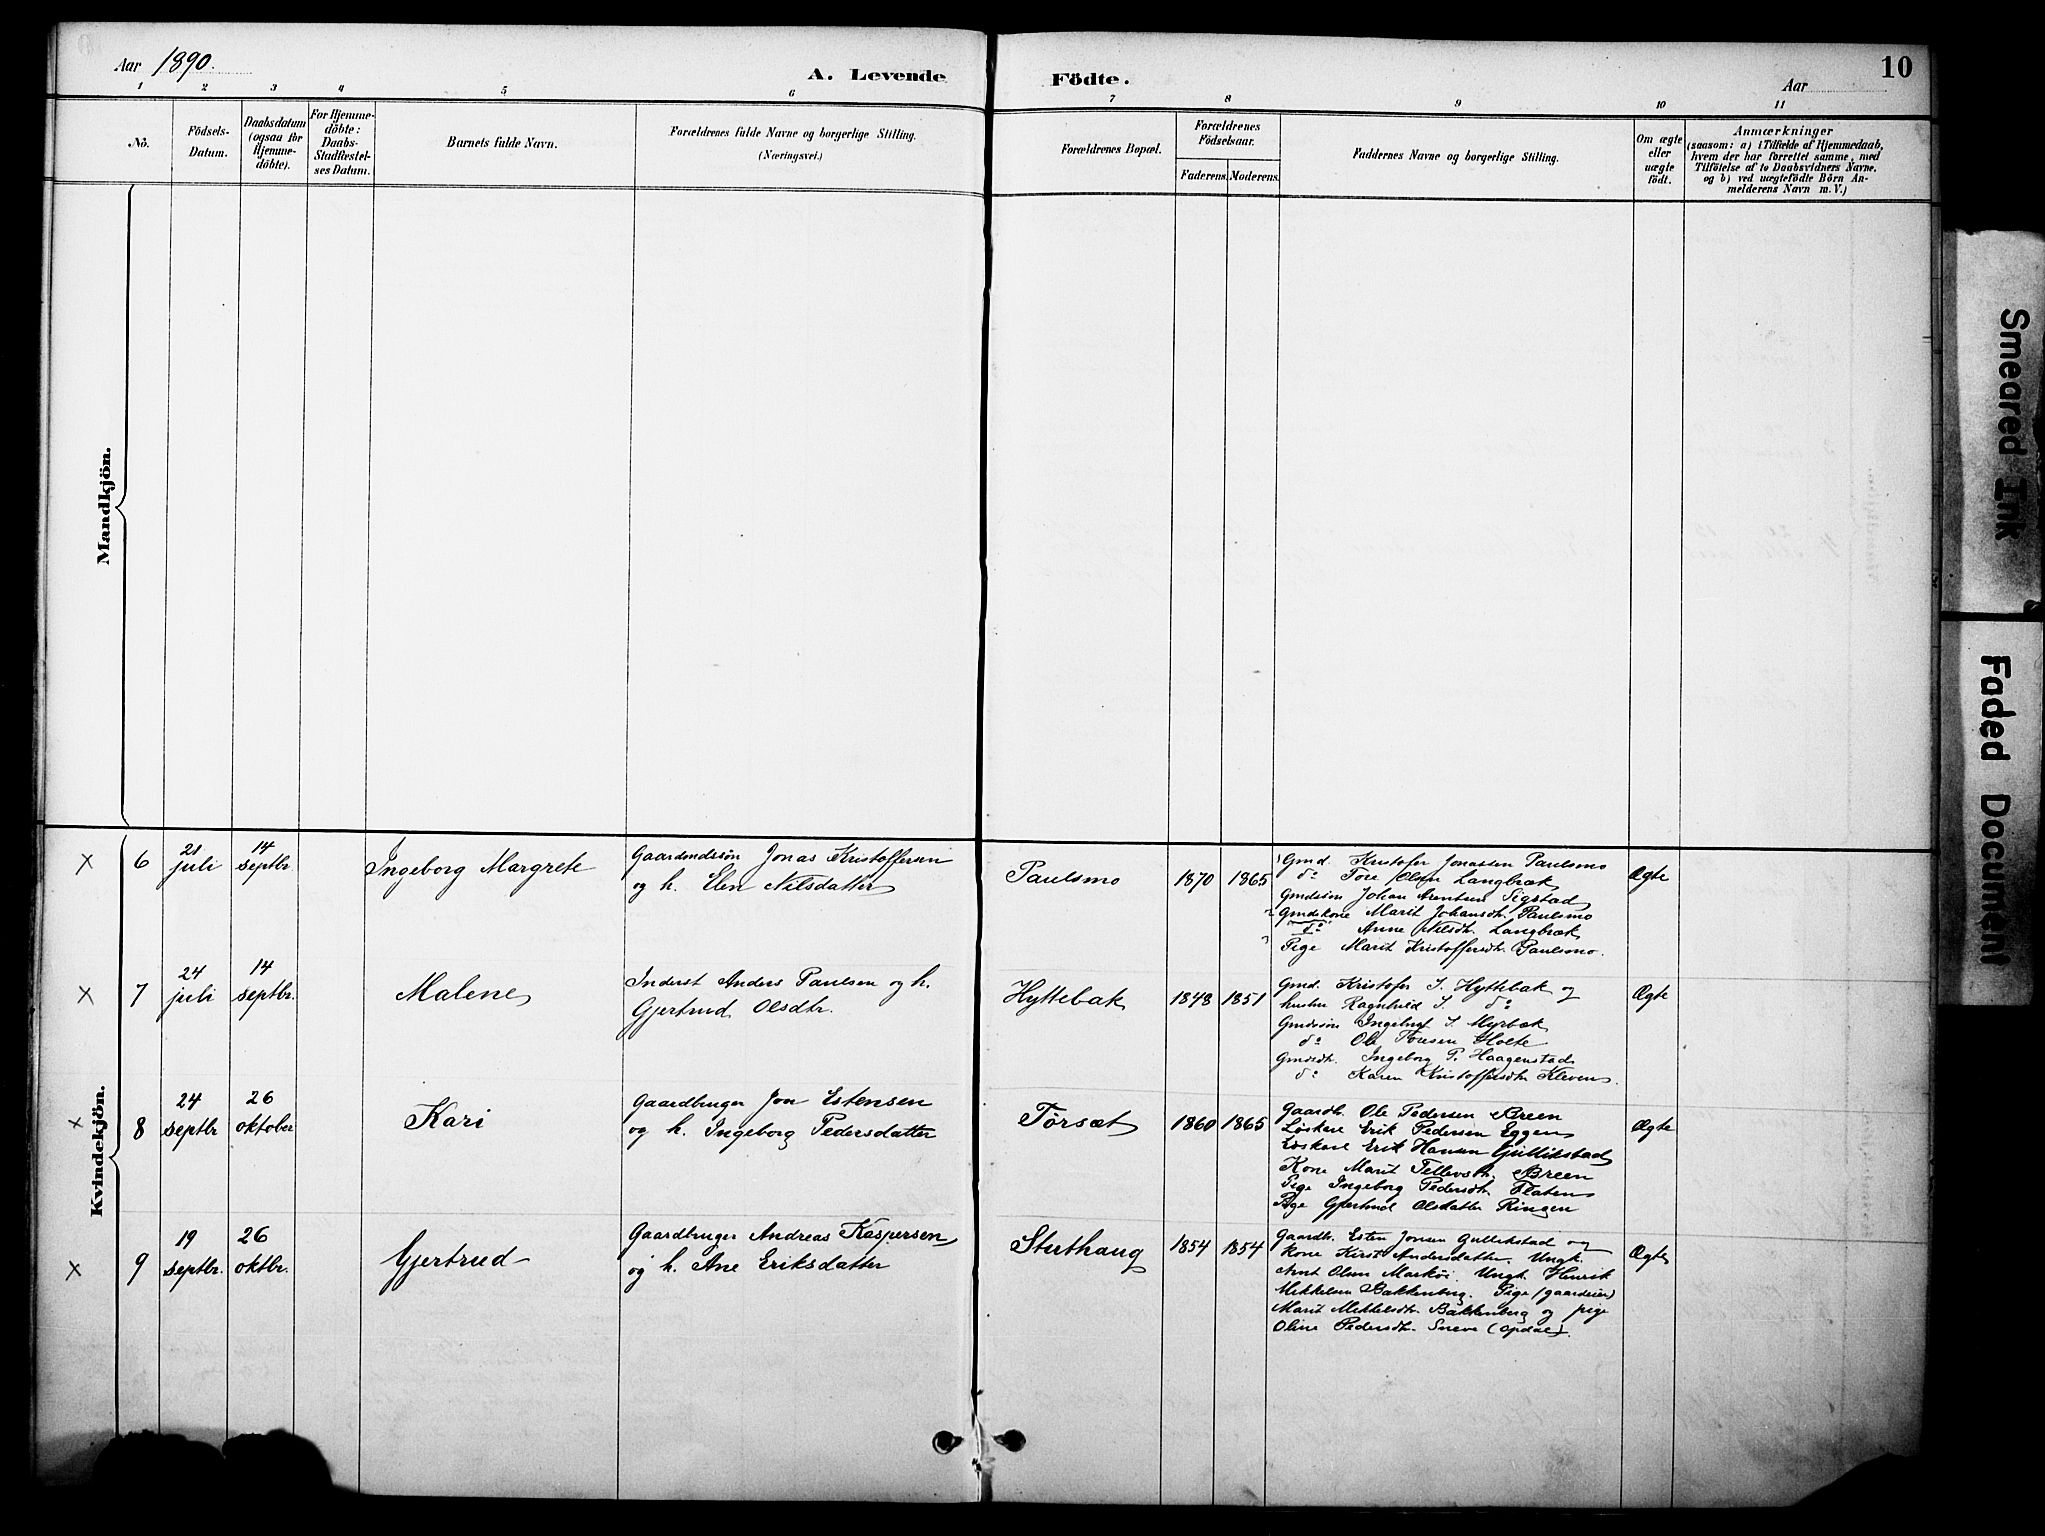 Aar 1890.
A. Levende Födte.
Aar
10
1 2 3 4 5 6 7 8 9 10 11
No.
Födsels-
Datum.
Daabsdatum
(ogsaa for
Hjemme-
döbte).
For Hjemme-
döbte:
Daabs-
Stadfæstel-
ses Datum.
Barnets fulde Navn.
Forældrenes fulde Navne og borgerlige Stilling.
(Næringsvei.)
Forældrenes Bopæl.
Forældrenes
Födselsaar.
Faderens. Moderens.
Faddernes Navne og borgerlige Stilling.
Om ægte
eller
uægte
födt.
Anmærkninger
(saasom: a) i Tilfælde af Hjemmedaab,
hvem der har forrettet samme, med
Tilföielse af to Daabsvidners Navne,
og b) ved uægtefödte Börn An-
melderens Navn m. V.)
Mandkjön.
Kvindekjön.
× 6
21
juli
14
septbr
Ingeborg Margrete
Gaardmdssön Jonas Kristoffersen
og h. Elen Nilsdatter
Paulsmo
1870 1865
Gmd. Kristofer Jonassen Paulsmo
do Tore Olsen Langbræk
Gmdssön Johan Arentsen Sigstad
Gmdskone Marit Johansdtr. Paulsmo
do Anne Nilsdtr. Langbræk
Pige Marit Kristoffersdtr. Paulsmo.
Ægte
× 7
24
juli
14
septbr.
Malene
Inderst Anders Paulsen og h.
Gjertrud Olsdtr.
Hyttebak
1848 1851
Gmd. Kristofer I. Hyttebak og
hustru Ragnhild I. do
Gmdssön Ingebrigt I. Myrbæk
do Ole Toresen Holte
Gmdsdtr. Ingeborg P. Haagenstad
do Karen Kristoffersdtr Kleven.
Ægte
× 8
24
septbr
26
oktober
Kari
Gaardbruger Jon Estensen
og h. Ingeborg Pedersdatter
Törsæt
1860 1865
Gaardb. Ole Pedersen Breen
Löskarl Erik Pedersen Eggen
Löskarl Erik Hansen Gullikstad
Kone Marit Tellevsdtr. Breen
Pige Ingeborg Pedersdtr. Flaten
Pige Gjertrud Olsdatter Ringen
Ægte
× 9
19
septbr.
26
oktbr.
Gjertrud
Gaardbruger Andreas Kaspersen
og h. Ane Eriksdatter
Stuthaug
1854 1854
Gaardb. Esten Jonsen Gullikstad og
Kone Kirsti Andersdatter. Ungk.
Arnt Olsen Marköi. Ungk. Henrik
Mikkelsen Bakkenberg. Pige (gaardeier)
Marit Mikkelsdtr. Bakkenberg og pige
Oline Pedersdtr. Sneve (Opdal).
Ægte
Smeared Ink
Faded Document